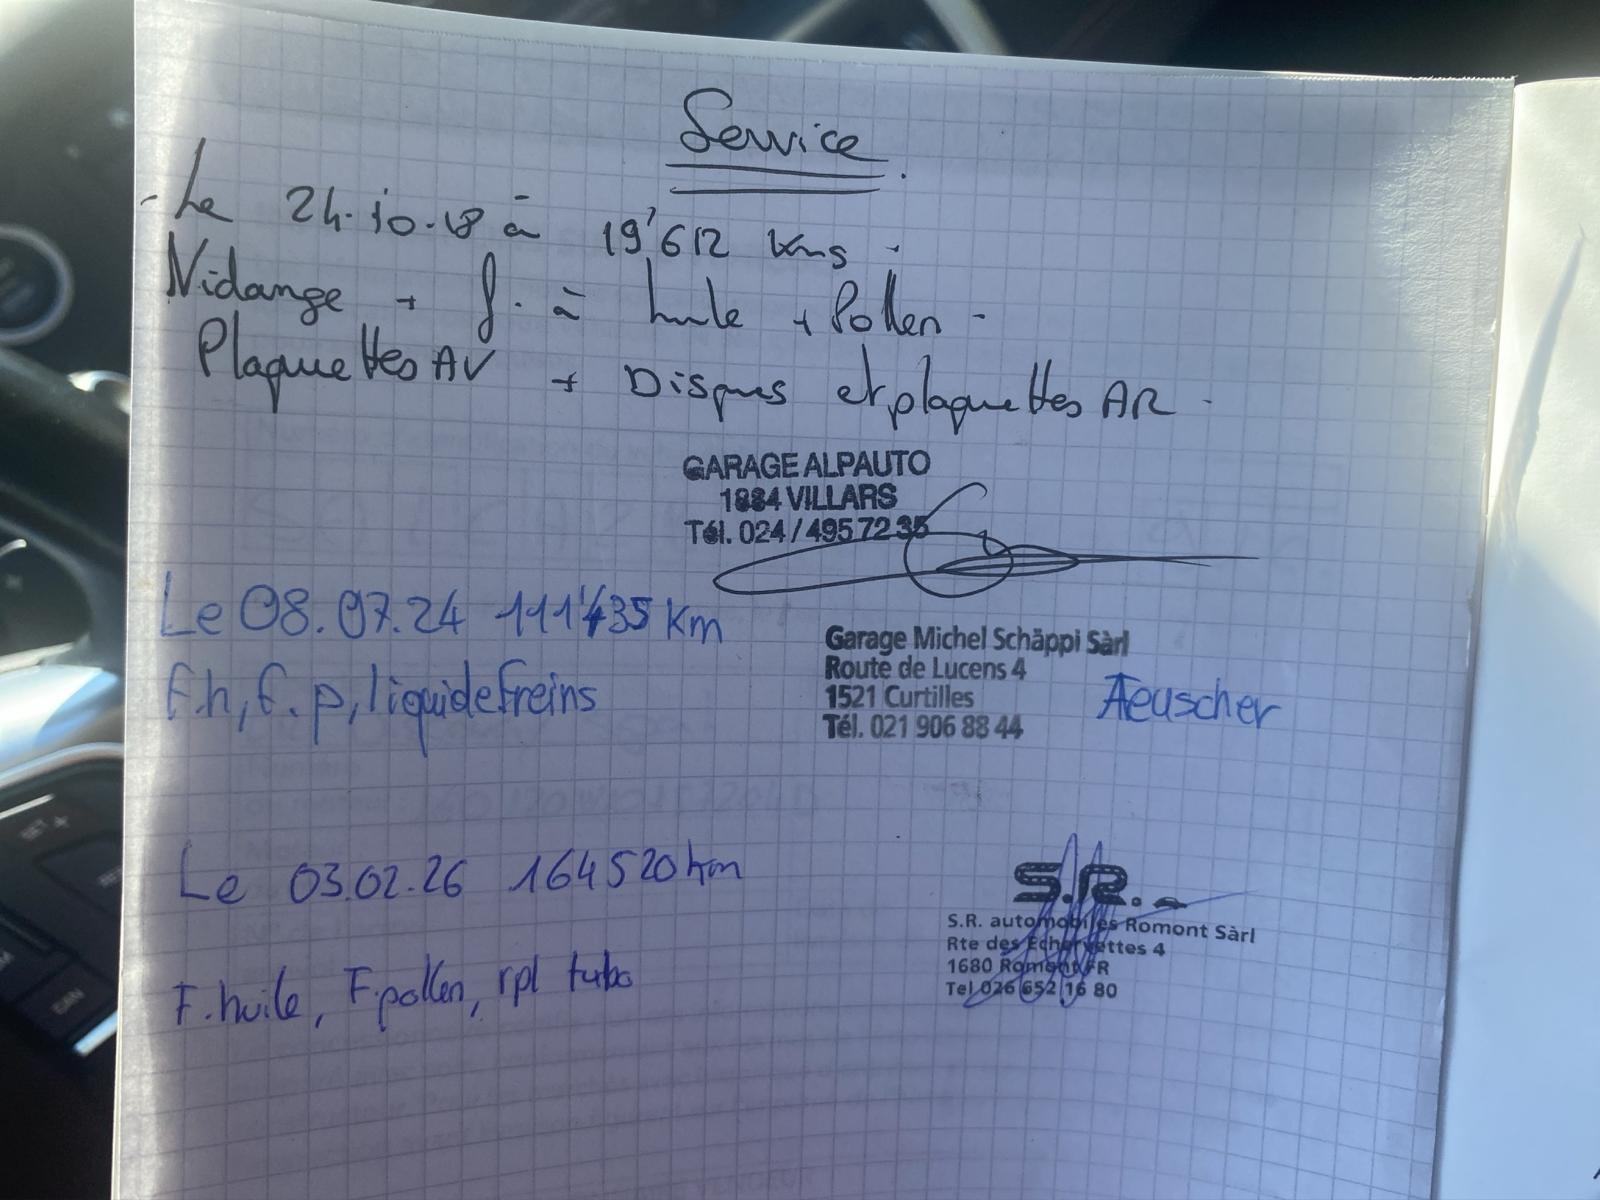 Service
- Le 24.10.18 à 19'612 Kms.
Vidange + f. à huile + Pollen -
Plaquettes AV + Disques et plaquettes AR.
GARAGE ALPAUTO
1884 VILLARS
Tél. 024 / 495 72 35
Le 08.07.24 111'435 km
f.h, f.p, liquide freins
Garage Michel Schäppi Sàrl
Route de Lucens 4
1521 Curtilles
Tél. 021 906 88 44
Aeuscher
Le 03.02.26 164520 km
F.huile, F.pollen, rpl turbo
S.R.
S.R. automobiles Romont Sàrl
Rte des Echervettes 4
1680 Romont FR
Tel 026 652 16 80
SET +
CAN